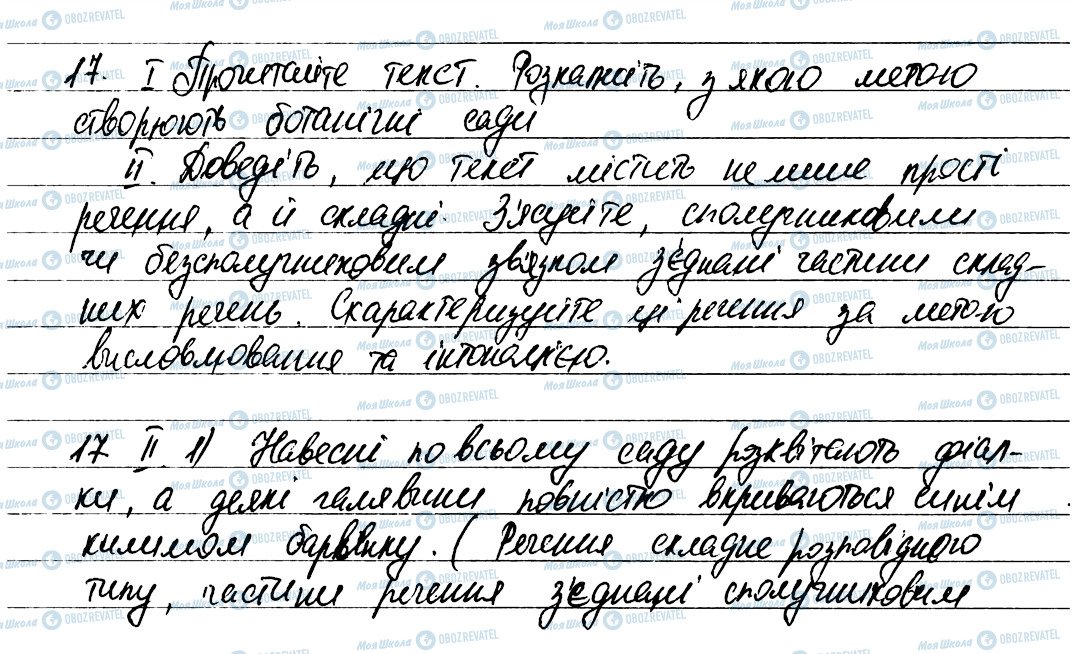 17. I Прочитайте текст. Розкажіть, з якою метою
створюють ботанічні сади
II. Доведіть, що текст містить не лише прості
речення, а й складні. З'ясуйте, сполучниковим
чи безсполучниковим зв'язком з'єднані частини склад-
них речень. Схарактеризуйте ці речення за метою
висловлювання та інтонацією.
17 II 1) Навесні по всьому саду розквітають фіал-
ки, а деякі галявини повністю вкриваються синім
килимом барвінку. (Речення складне розповідного
типу, частини речення з'єднані сполучниковим